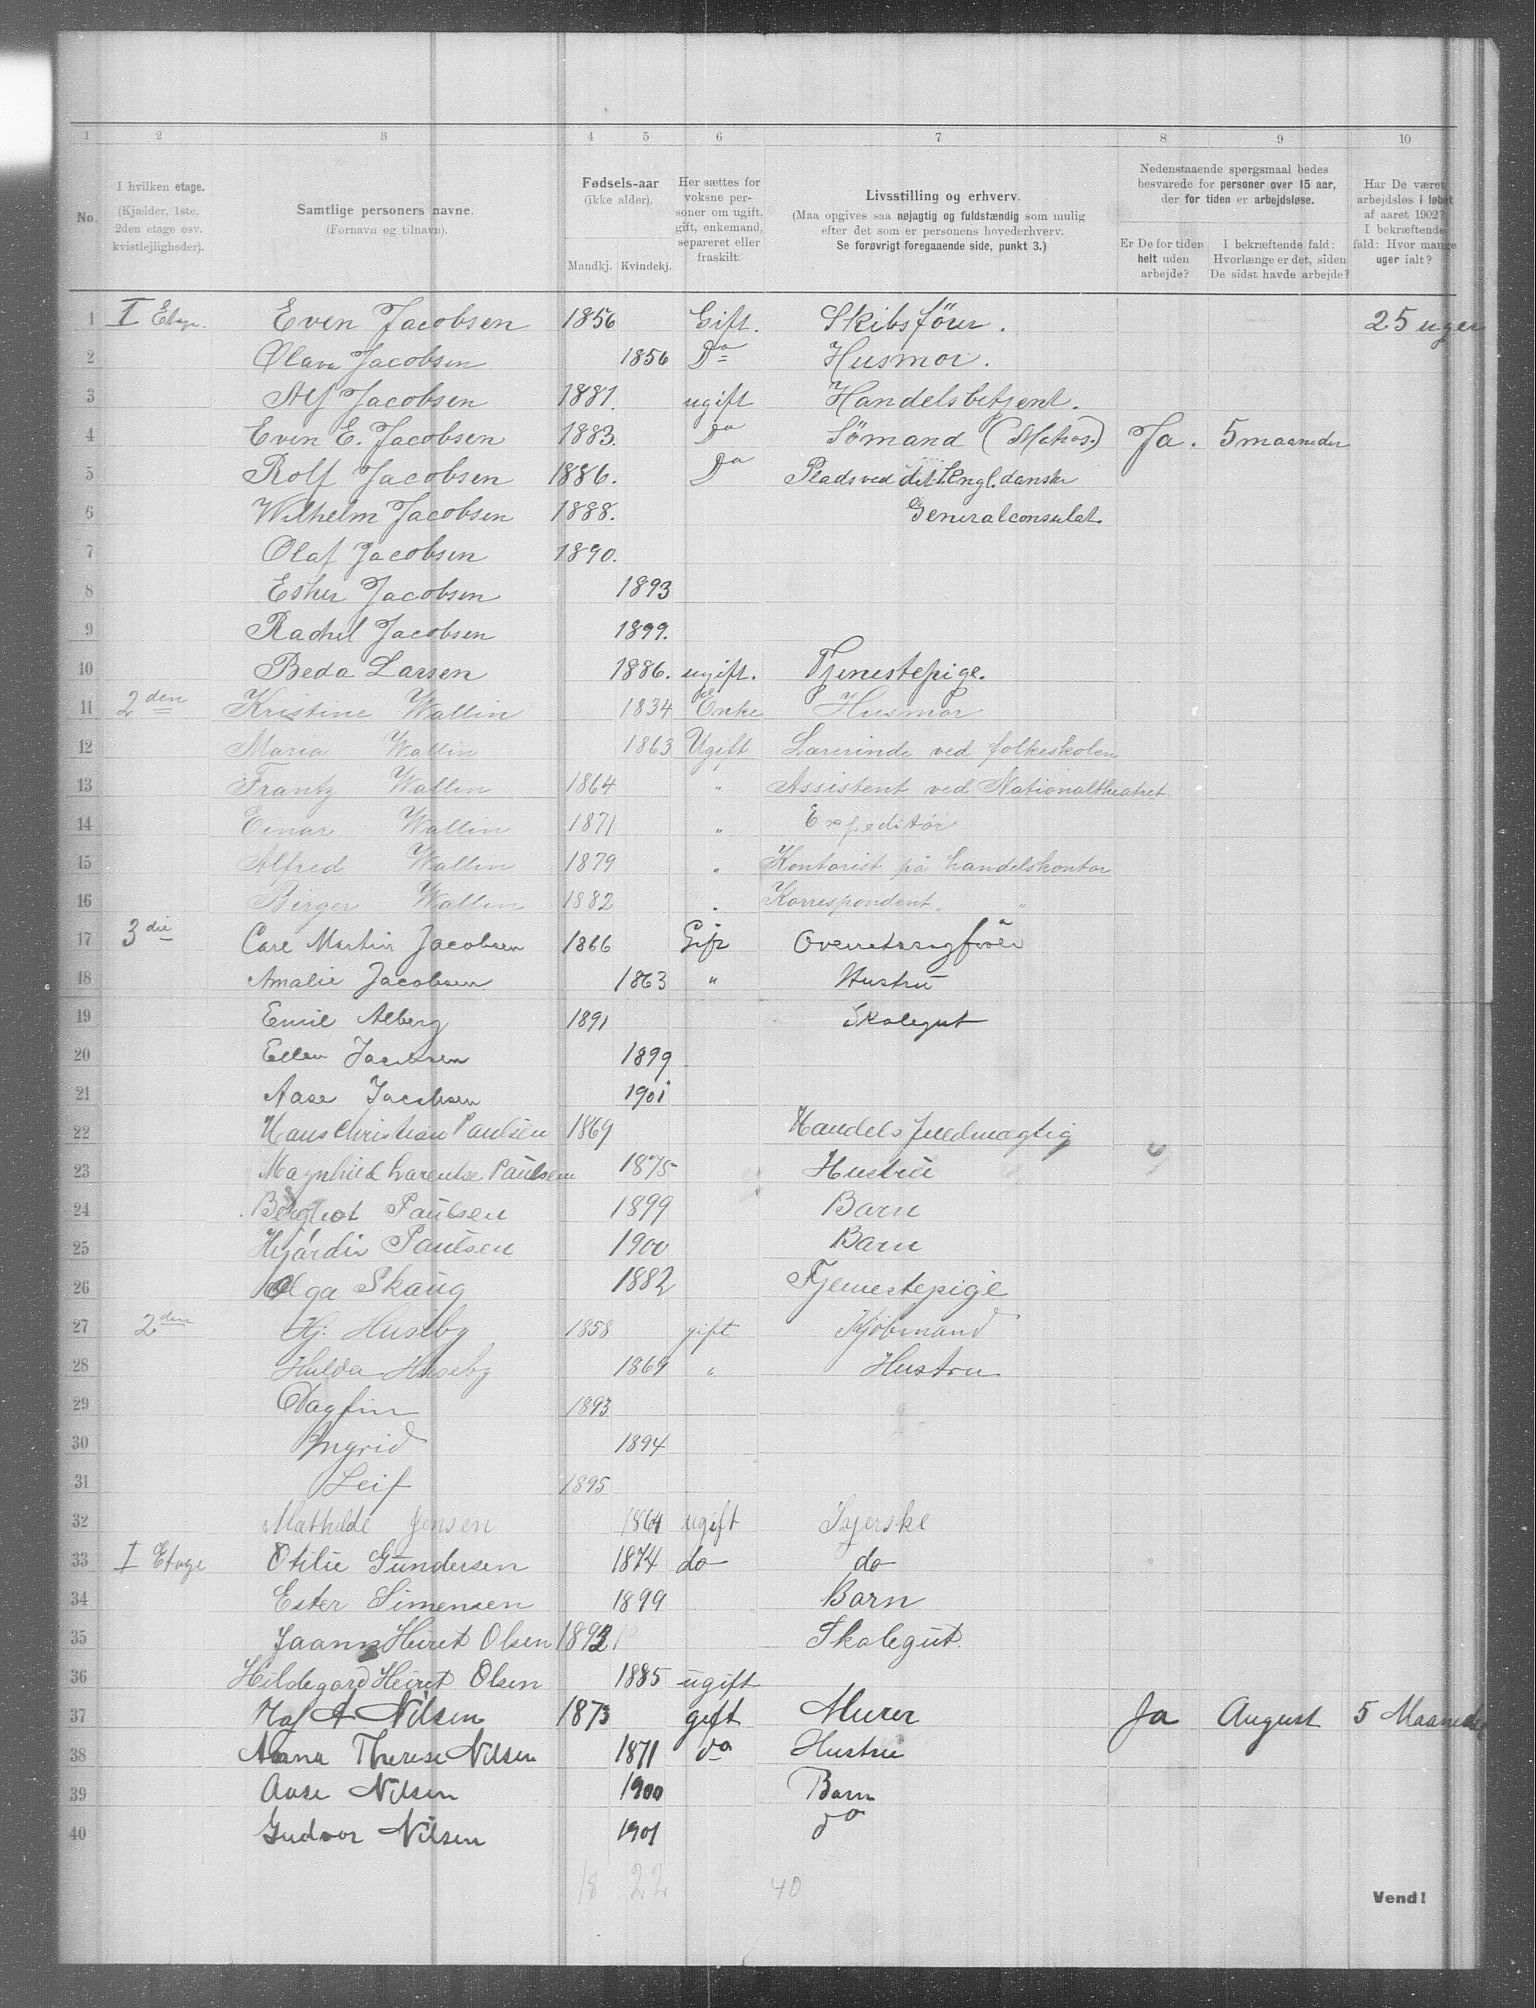 1 2 3 4 5 6 7 8 9 10
No.
I hvilken etage.
(Kjælder, 1ste, 2den etage osv. kvistlejligheder).
Samtlige personers navne.
(Fornavn og tilnavn).
Fødsels-aar
(ikke alder).
Mandkj. Kvindekj.
Her sættes for voksne personer om ugift, gift, enkemand, separeret eller fraskilt.
Livsstilling og erhverv.
(Maa opgives saa nøjagtig og fuldstændig som mulig efter det som er personens hovederhverv.
Se forøvrigt foregaaende side, punkt 3.)
Nedenstaaende spørgsmaal bedes besvarede for personer over 15 aar, der for tiden er arbejdsløse.
Er De for tiden helt uden arbejde?
I bekræftende fald: Hvorlænge er det, siden De sidst havde arbejde?
Har De været arbejdsløs i løbet af aaret 1902? I bekræftende fald: Hvor mange uger ialt?
1 I Etage. Even Jacobsen 1856 Gift. Skibsförer. 25 uger
2 Olava Jacobsen 1856 Do Husmor.
3 Alf Jacobsen 1881. ugift Handelsbetjent.
4 Even E. Jacobsen 1883. Do Sömand (Matros.) Ja. 5 maaneder
5 Rolf Jacobsen 1886. Do Plads ved det Engl. danske
6 Wilhelm Jacobsen 1888. Generalconsulat.
7 Olaf Jacobsen 1890.
8 Esther Jacobsen 1893
9 Rachel Jacobsen 1899.
10 Beda Larsen 1886. ugift. Tjenestepige.
11 2den Kristine Wallin 1834 Enke Husmor
12 Maria Wallin 1863 Ugift Lærerinde ved folkeskolen
13 Frantz Wallin 1864 " Assistent ved Nationaltheatret
14 Einar Wallin 1871 " Expeditör
15 Alfred Wallin 1879 " Kontorist på handelskontor
16 Birger Wallin 1882 " Korrespondent "
17 3die Carl Martin Jacobsen 1866 Gift Overretssagförer
18 Amalie Jacobsen 1863 " Hustru
19 Emil Alberg 1891 Skolegut
20 Ellen Jacobsen 1899
21 Aase Jacobsen 1901
22 Hans Christian Paulsen 1869 Handelsfuldmægtig
23 Magnhild Larentse Paulsen 1875 Hustru
24 Bergliot Paulsen 1899 Barn
25 Hjördis Paulsen 1900 Barn
26 Olga Skaug 1882 Tjenestepige
27 2den Hj. Huseby 1858 gift Kjöbmand
28 Hulda Huseby 1869 " Hustru
29 Dagfin 1893
30 Ingrid 1894
31 Leif 1895
32 Mathilde Jensen 1864 ugift Syerske
33 I Etage Otilie Gundersen 1874 do do
34 Ester Simensen 1899 Barn
35 Heiret Olsen 1893 Skolegut
36 Hildegard Heiret Olsen 1885 ugift
37 A Nilsen 1873 gift Murer Ja August 5 Maaneder
38 Anna Therese Nilsen 1871 do Hustru
39 Aase Nilsen 1900 Barn
40 Gudvor Nilsen 1901 do
18 22 40
Vend!